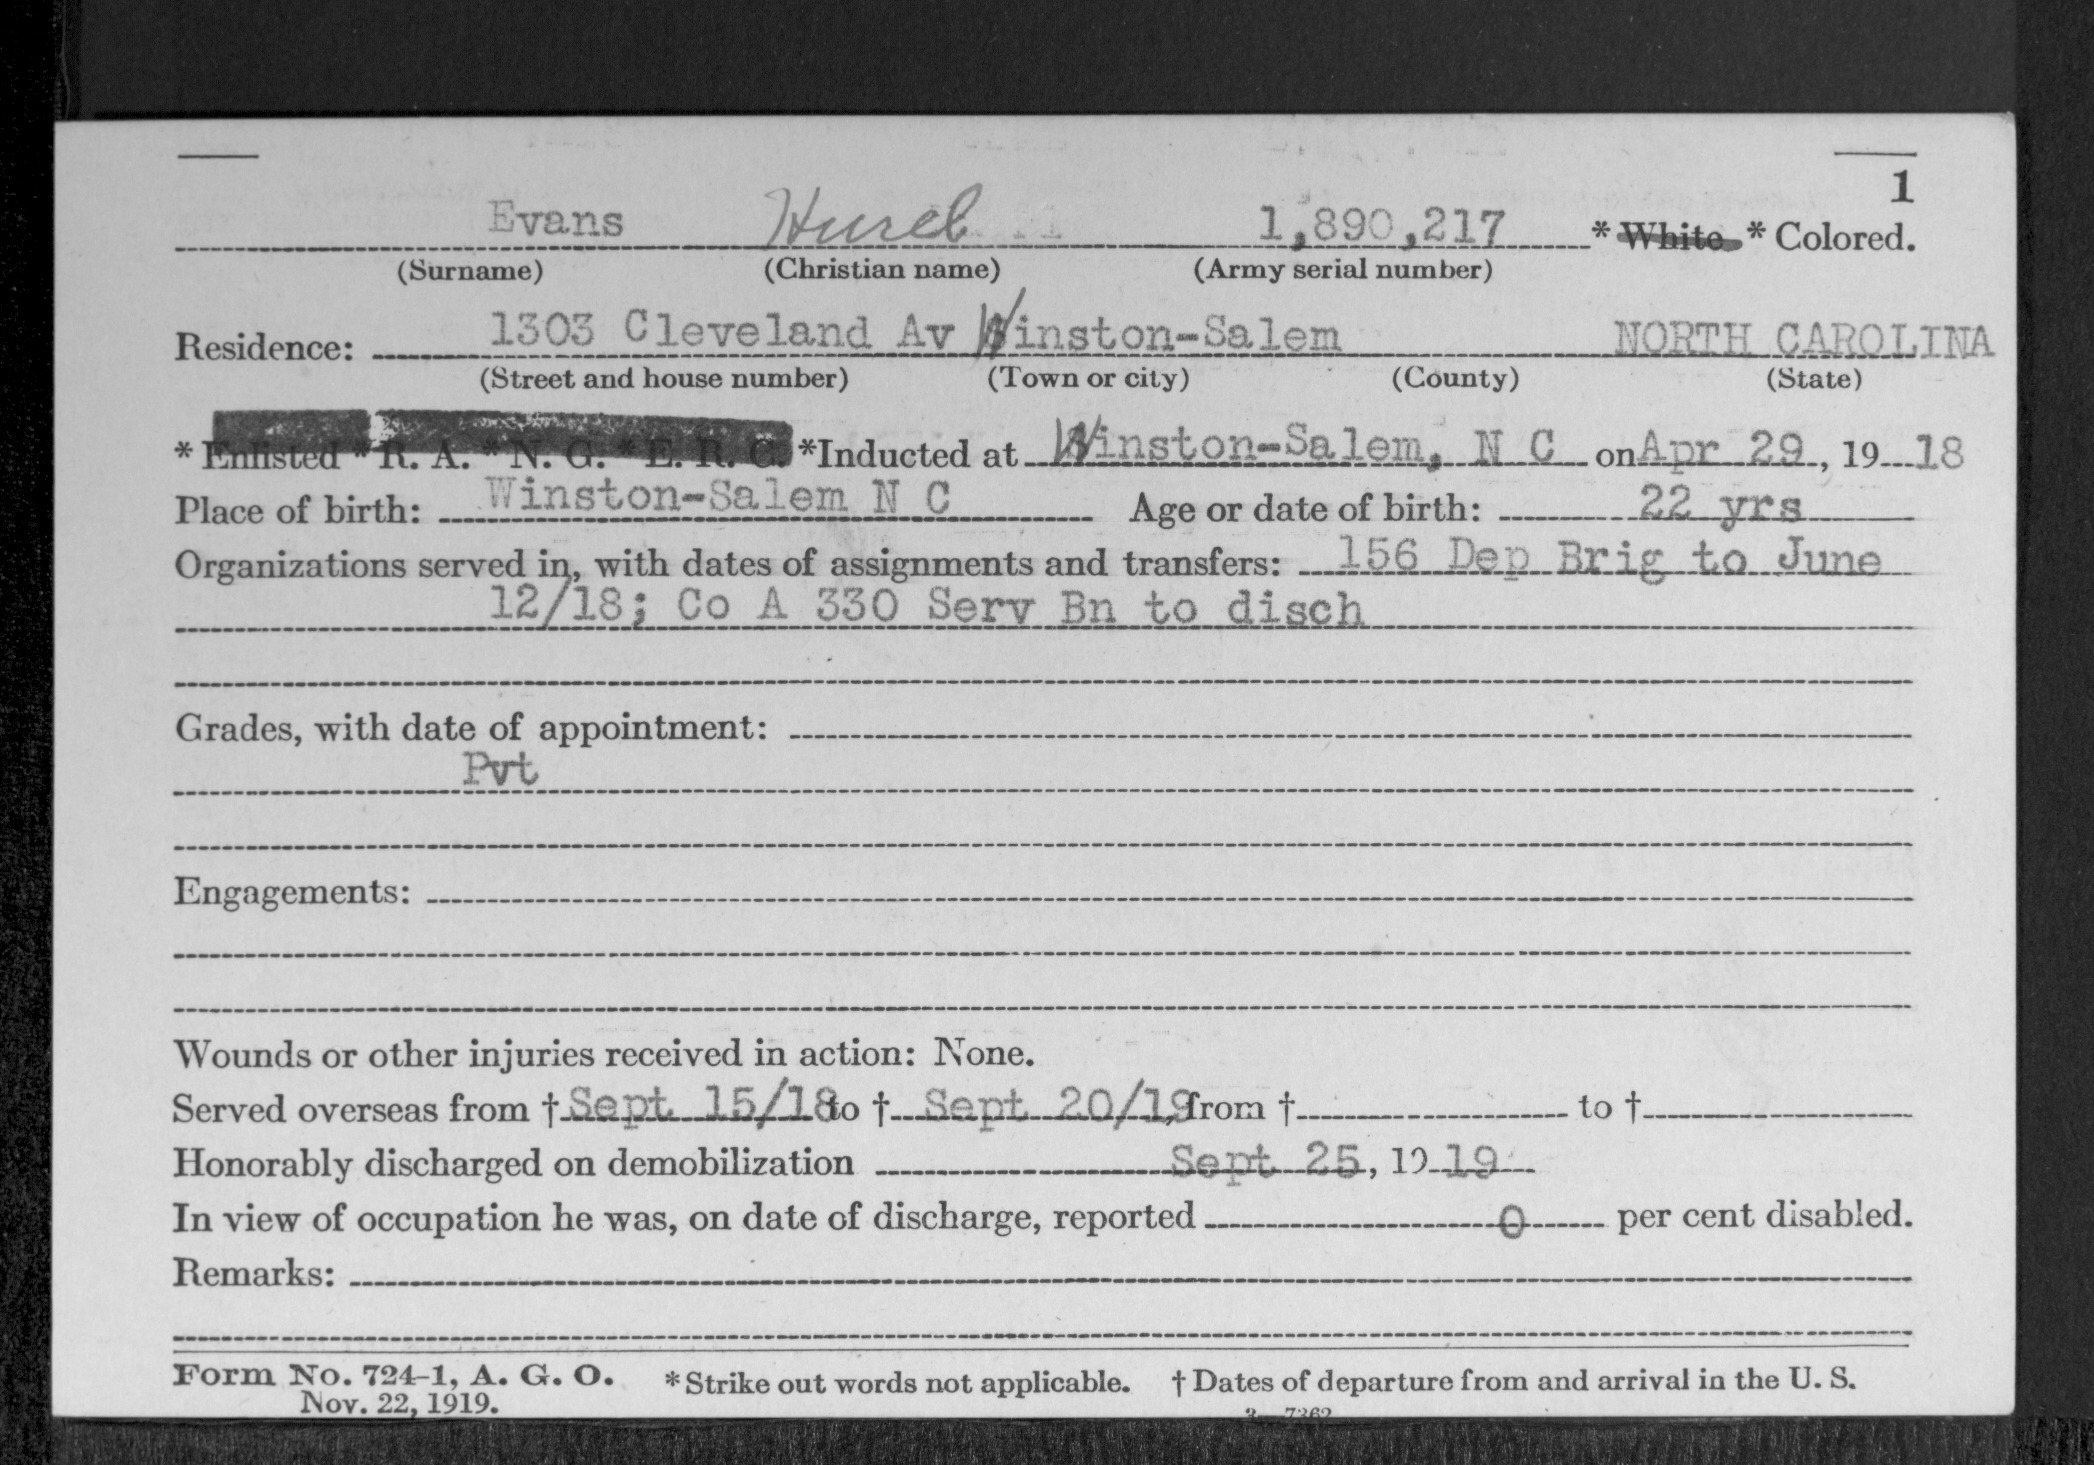 1
Evans Hurel 1,890,217 * White * Colored.
(Surname) (Christian name) (Army serial number)
Residence: 1303 Cleveland Av Winston-Salem NORTH CAROLINA
(Street and house number) (Town or city) (County) (State)
* Enlisted * R. A. * N. G. * E. R. C. *Inducted at Winston-Salem, N C on Apr 29, 19 18
Place of birth: Winston-Salem N C Age or date of birth: 22 yrs
Organizations served in, with dates of assignments and transfers: 156 Dep Brig to June
12/18; Co A 330 Serv Bn to disch
Grades, with date of appointment:
Pvt
Engagements:
Wounds or other injuries received in action: None.
Served overseas from † Sept 15/18 to † Sept 20/19, from † to †
Honorably discharged on demobilization Sept 25, 19 19
In view of occupation he was, on date of discharge, reported 0 per cent disabled.
Remarks:
Form No. 724-1, A. G. O. * Strike out words not applicable. † Dates of departure from and arrival in the U. S.
Nov. 22, 1919. 3—7362